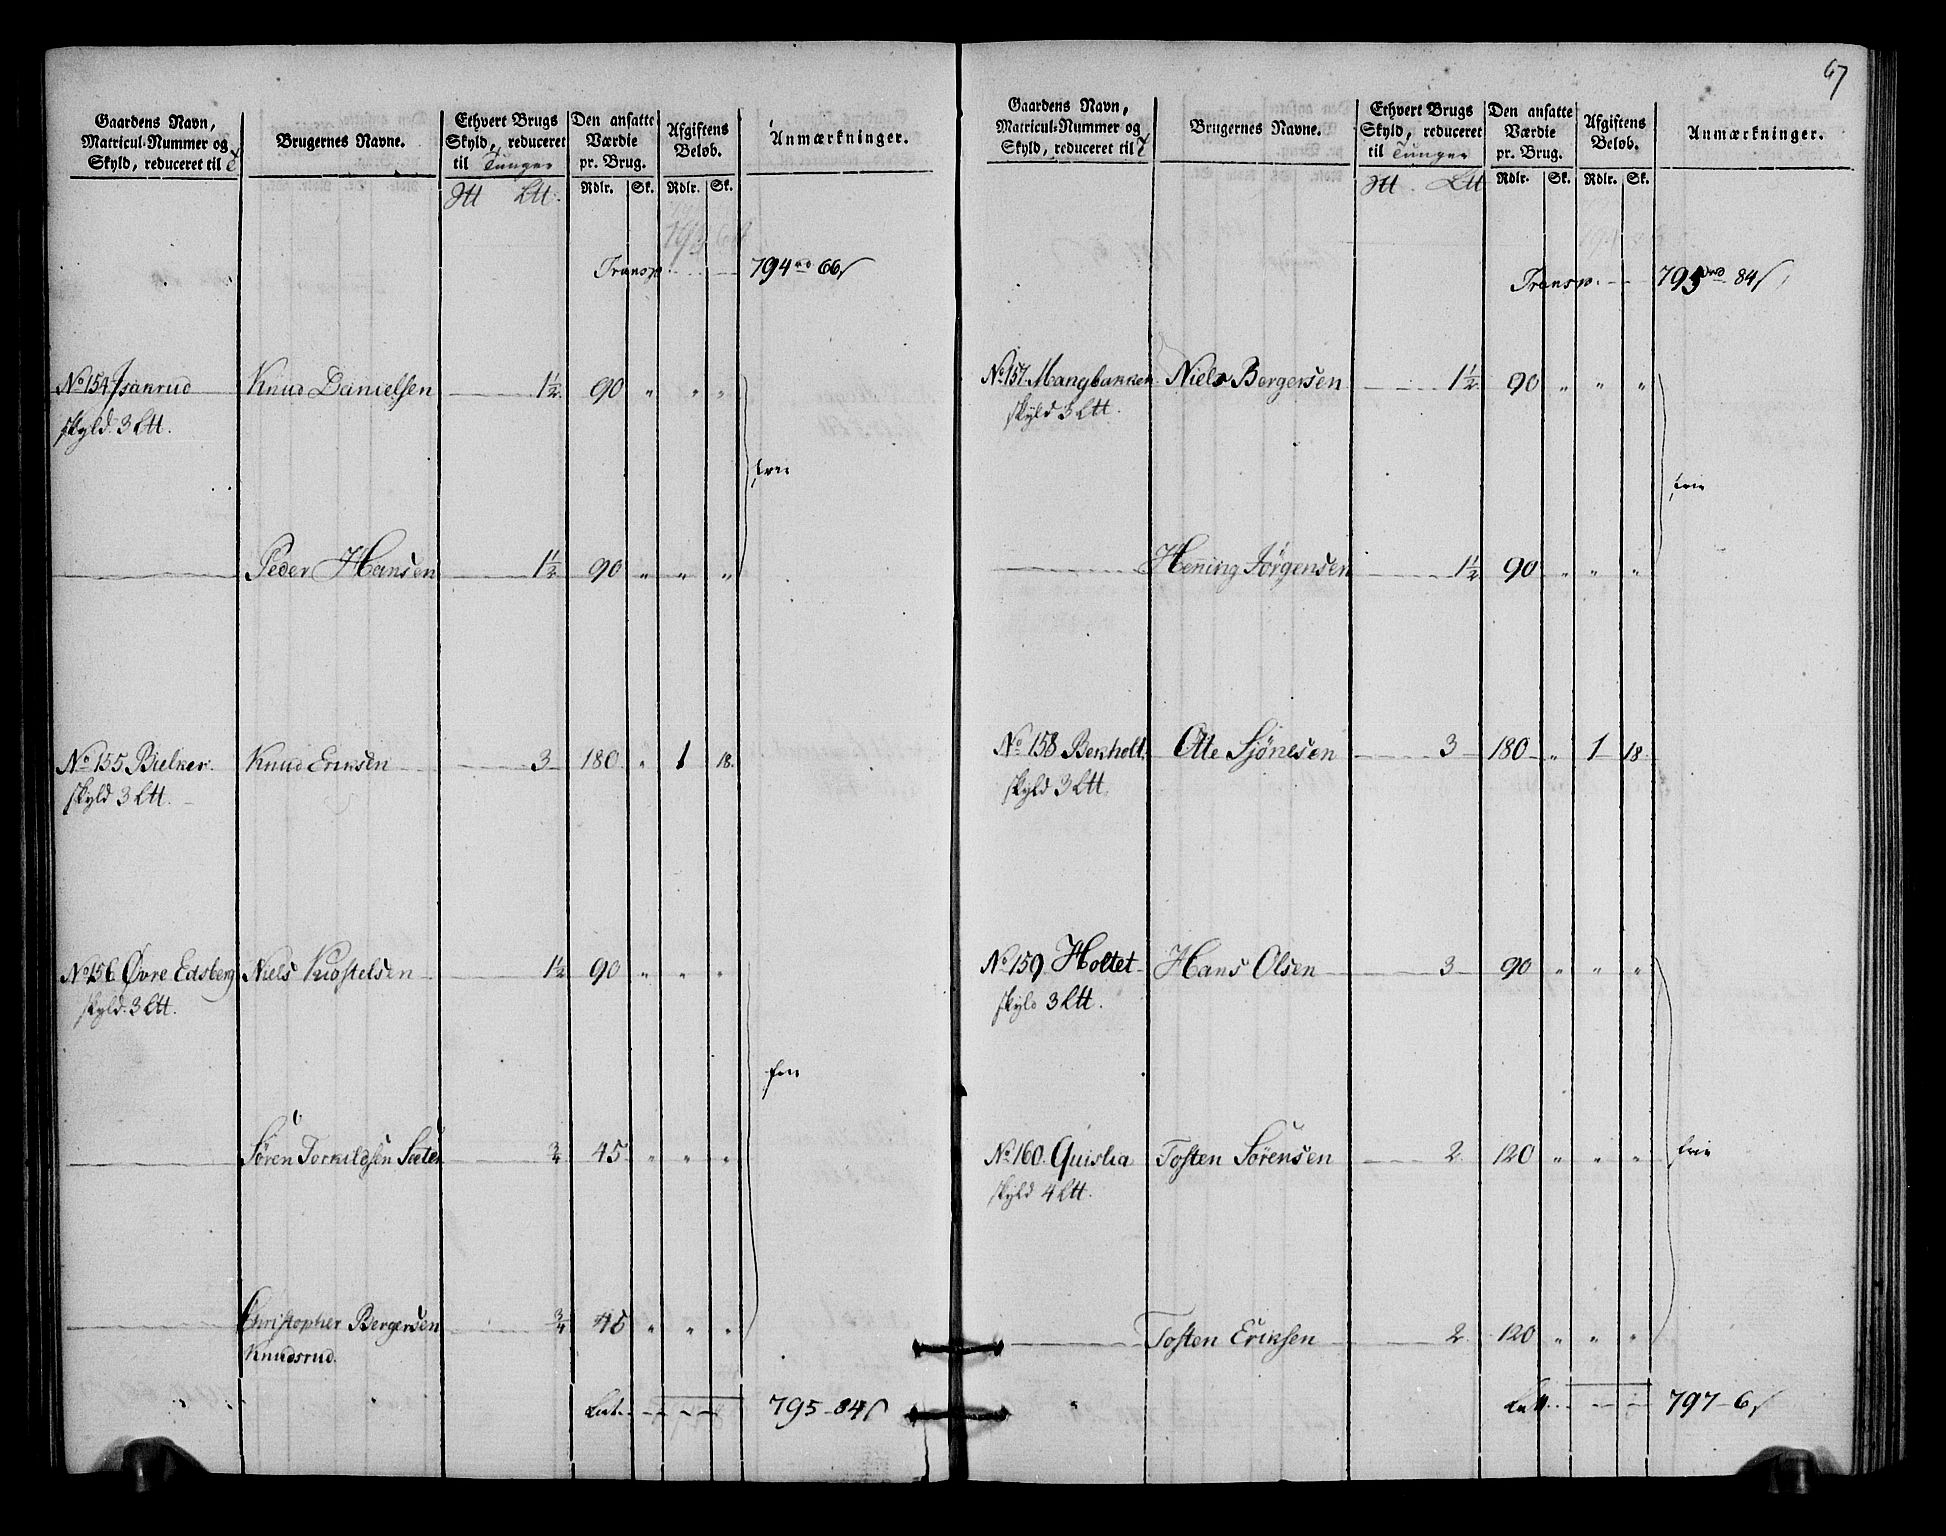 Gaardens Navn, Matricul-Nummer og Skyld, reduceret til
Brugernes Navne.
Ethvert Brugs Skyld, reduceret til Tunger
Den ansatte Værdie pr. Brug.
Afgiftens Beløb.
Anmærkninger.
Rdlr. Sk. Rdlr. Sk.
Transp. 794 66
No 154 Isanrud Knud Danielsen 1½ 90 " " "
skyld 3 Ltt.
frie
Peder Hansen 1½ 90 " " "
No 155 Bielker Knud Eriksen 3 180 " 1 18.
skyld 3 Ltt.
No 156 Øvre Edsberg Niels Kiostelsen 1½ 90 " " "
skyld. 3 Ltt.
frie
Søren Torkildsen Sæter ¾ 45 " " "
Christopher Bergersen ¾ 45 " " "
Knudsrud.
Lat. 795 84
67
Gaardens Navn, Matricul-Nummer og Skyld, reduceret til
Brugernes Navne.
Ethvert Brugs Skyld, reduceret til Tunger
Den ansatte Værdie pr. Brug.
Afgiftens Beløb.
Anmærkninger.
Rdlr. Sk. Rdlr. Sk.
Transp. 795 84
No 157 Mangbakken Niels Bergersen 1½ 90 " " "
skyld 3 Ltt.
frie
Hening Jørgensen 1½ 90 " " "
No 158 Berkholt Otte Siønesen 3 180 " 1 18.
skyld 3 Ltt.
No 159 Holtet Hans Olsen 3 90 " " "
skyld 3 Ltt.
No 160. Quislia Tosten Sørensen 2 120 " " "
skyld 4 Ltt.
frie
Tosten Eriksen 2 120 " " "
Lat. 797 6